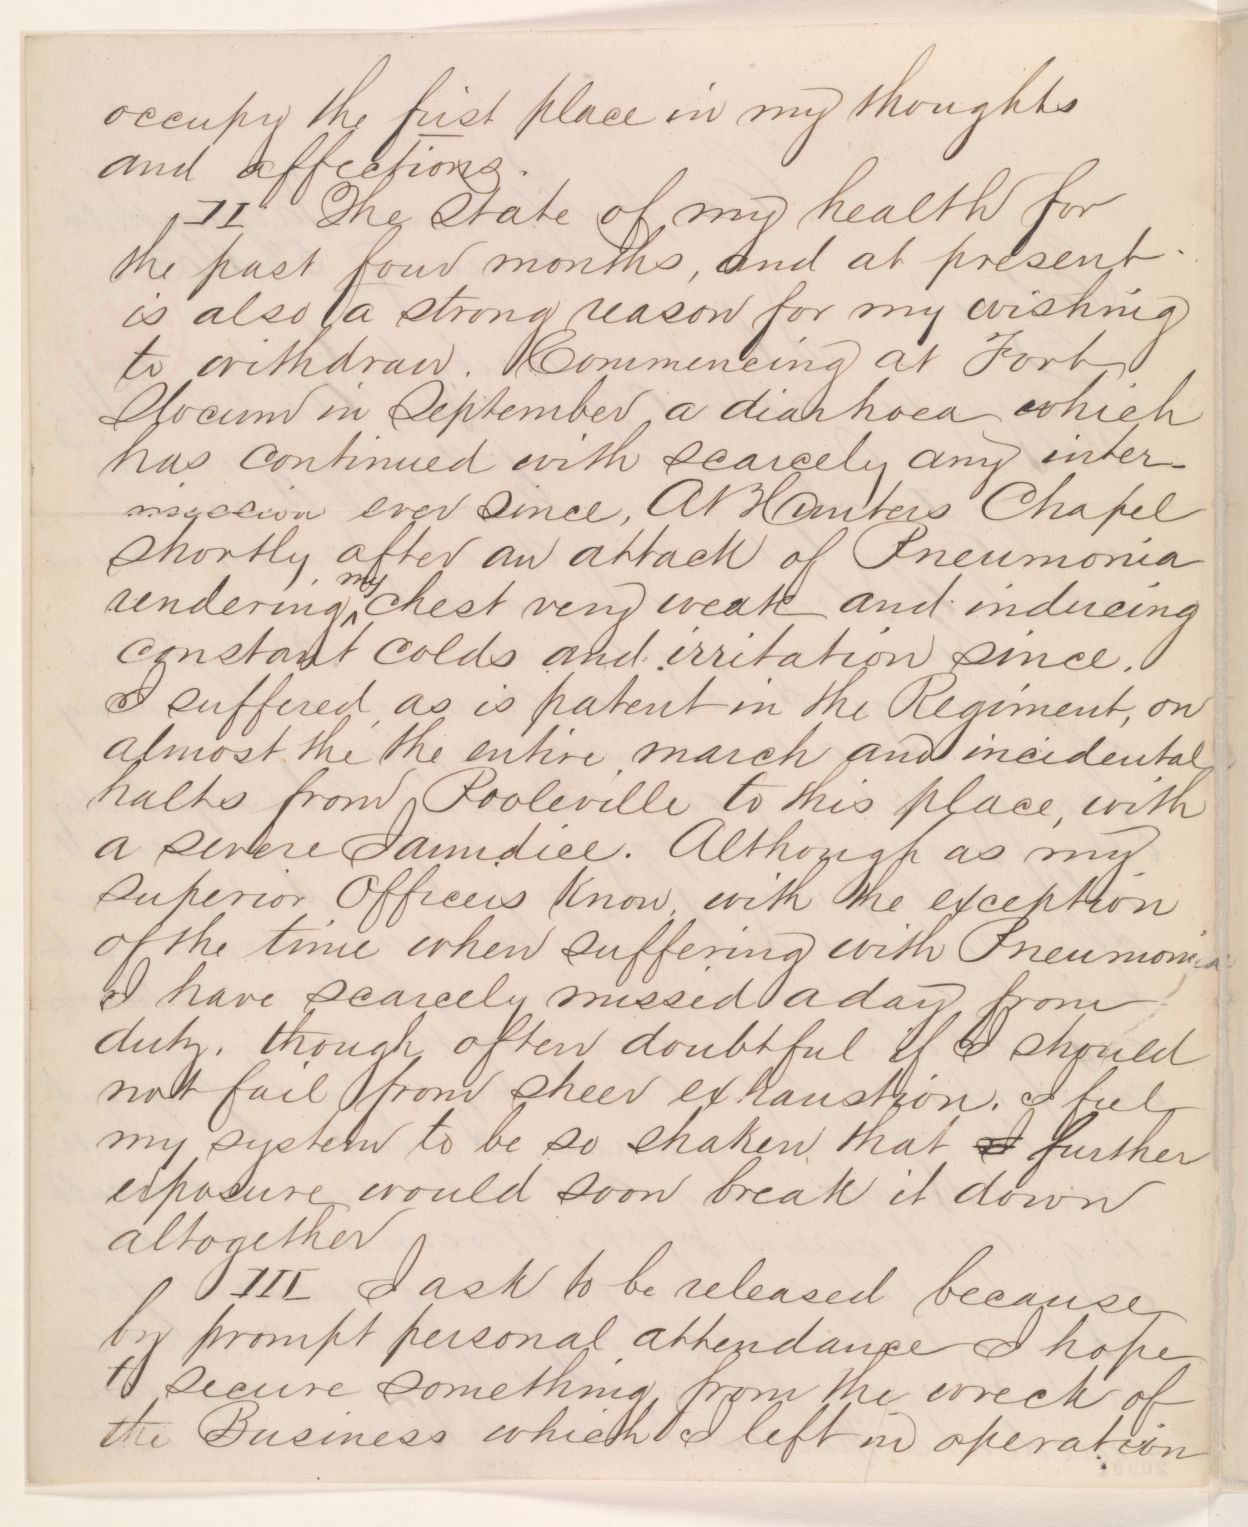 occupy the first place in my thoughts
and affections.
II The State of my health for
the past four months, and at present
is also a strong reason for my wishing
to withdraw. Commencing at Fort
Slocum in September a diarhoea which
has continued with scarcely any inter-
mission ever since, At Hunters Chapel
shortly after an attack of Pneumonia
rendering my chest very weak and inducing
constant colds and irritation since.
I suffered as is patent in the Regiment, on
almost the the entire march and incidental
halts from Pooleville to this place, with
a severe Jaundice. Although as my
superior Officers know, with the exception
of the time when suffering with Pneumonia
I have scarcely missed a day from
duty. though often doubtful if I should
not fail from sheer exhaustion. I feel
my system to be so shaken that I further
exposure would soon break it down
altogether
III I ask to be released because
by prompt personal attendance I hope
to secure something from the wreck of
the Business which I left in operation